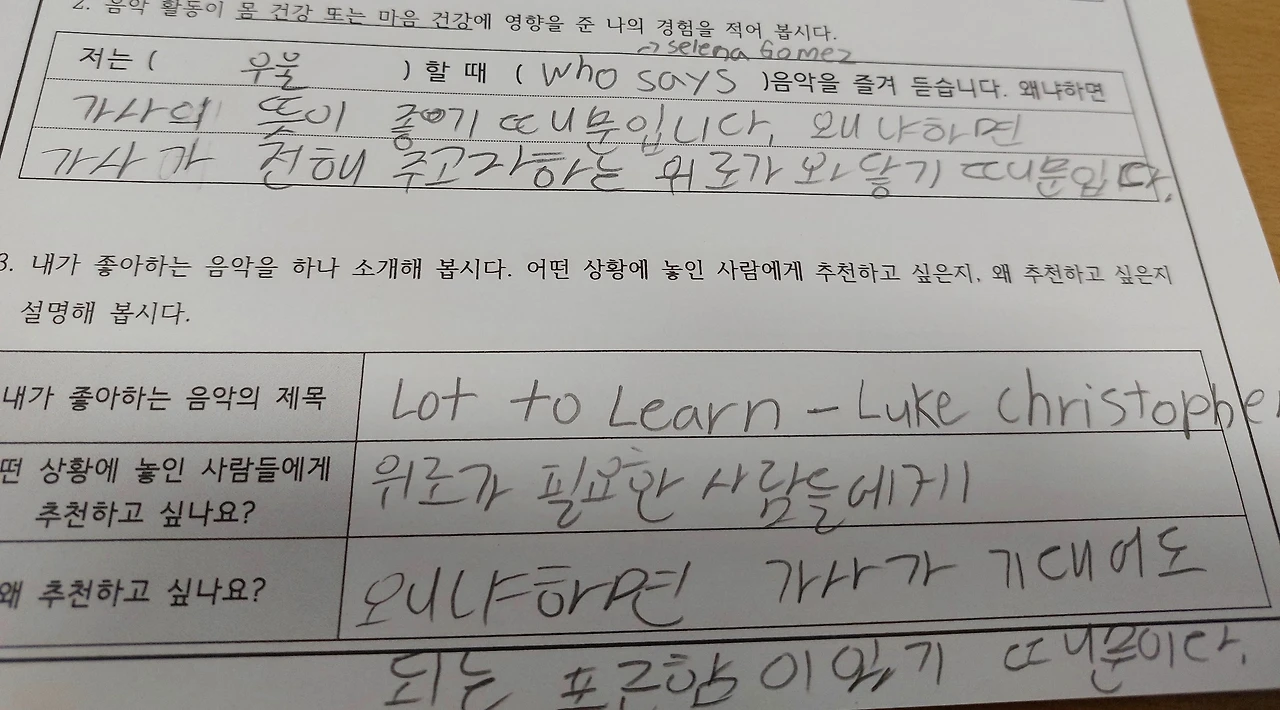 2. 음악 활동이 몸 건강 또는 마음 건강에 영향을 준 나의 경험을 적어 봅시다.
→ selena Gomez
저는 ( 우울 ) 할 때 ( who says )음악을 즐겨 듣습니다. 왜냐하면
가사의 뜻이 좋기 때문입니다, 왜냐하면
가사가 전해 주고자하는 위로가 와닿기 때문입다.
3. 내가 좋아하는 음악을 하나 소개해 봅시다. 어떤 상황에 놓인 사람에게 추천하고 싶은지, 왜 추천하고 싶은지
설명해 봅시다.
내가 좋아하는 음악의 제목
Lot to Learn - Luke Christopher
떤 상황에 놓인 사람들에게
추천하고 싶나요?
위로가 필요한 사람들에게
왜 추천하고 싶나요?
왜냐하면 가사가 기대어도
되는 포근함이 있기 때문이다.